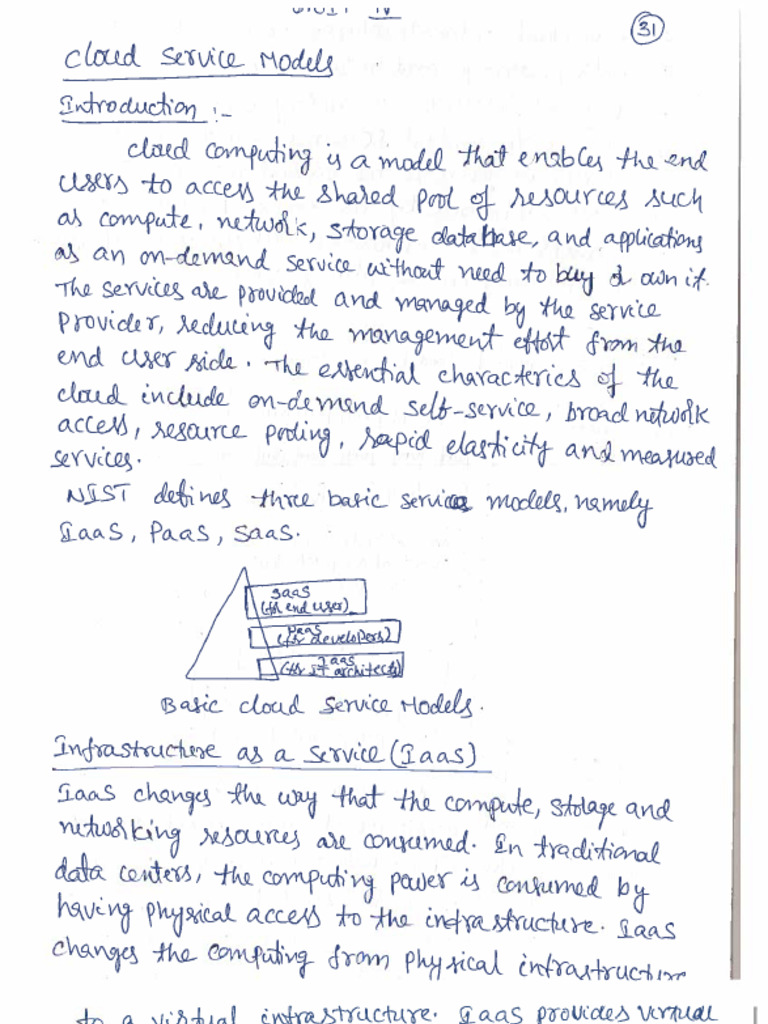 UNIT IV
31
Cloud Service Models
Introduction :-
Cloud computing is a model that enables the end
users to access the shared pool of resources such
as compute, network, storage database, and applications
as an on-demand service without need to buy & own it.
The services are provided and managed by the service
Provider, reducing the management effort from the
end user side. The essential characterics of the
cloud include on-demand self-service, broad network
access, resource pooling, rapid elasticity and measured
services.
NIST defines three basic services models, namely
IaaS, PaaS, SaaS.
SaaS
(for end user)
PaaS
(for developers)
IaaS
(for IT architects)
Basic Cloud Service Models.
Infrastructure as a Service (IaaS)
IaaS changes the way that the compute, storage and
networking resources are consumed. In traditional
data centers, the computing power is consumed by
having physical access to the infrastructure. IaaS
changes the computing from physical infrastructure
to a virtual infrastructure. IaaS provides virtual